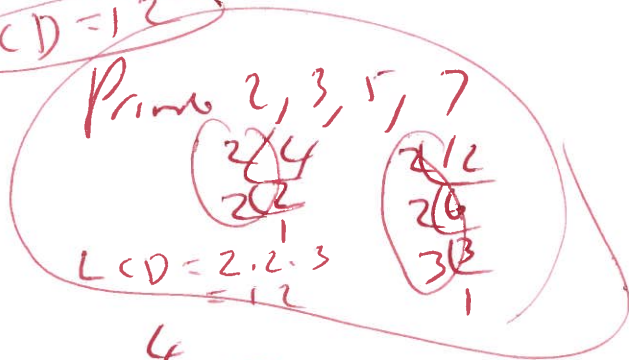 CD = 12
Prime 2, 3, 5, 7
2 4 2 12
2 2 2 6
1 3 3
LCD = 2.2.3 1
= 12
4